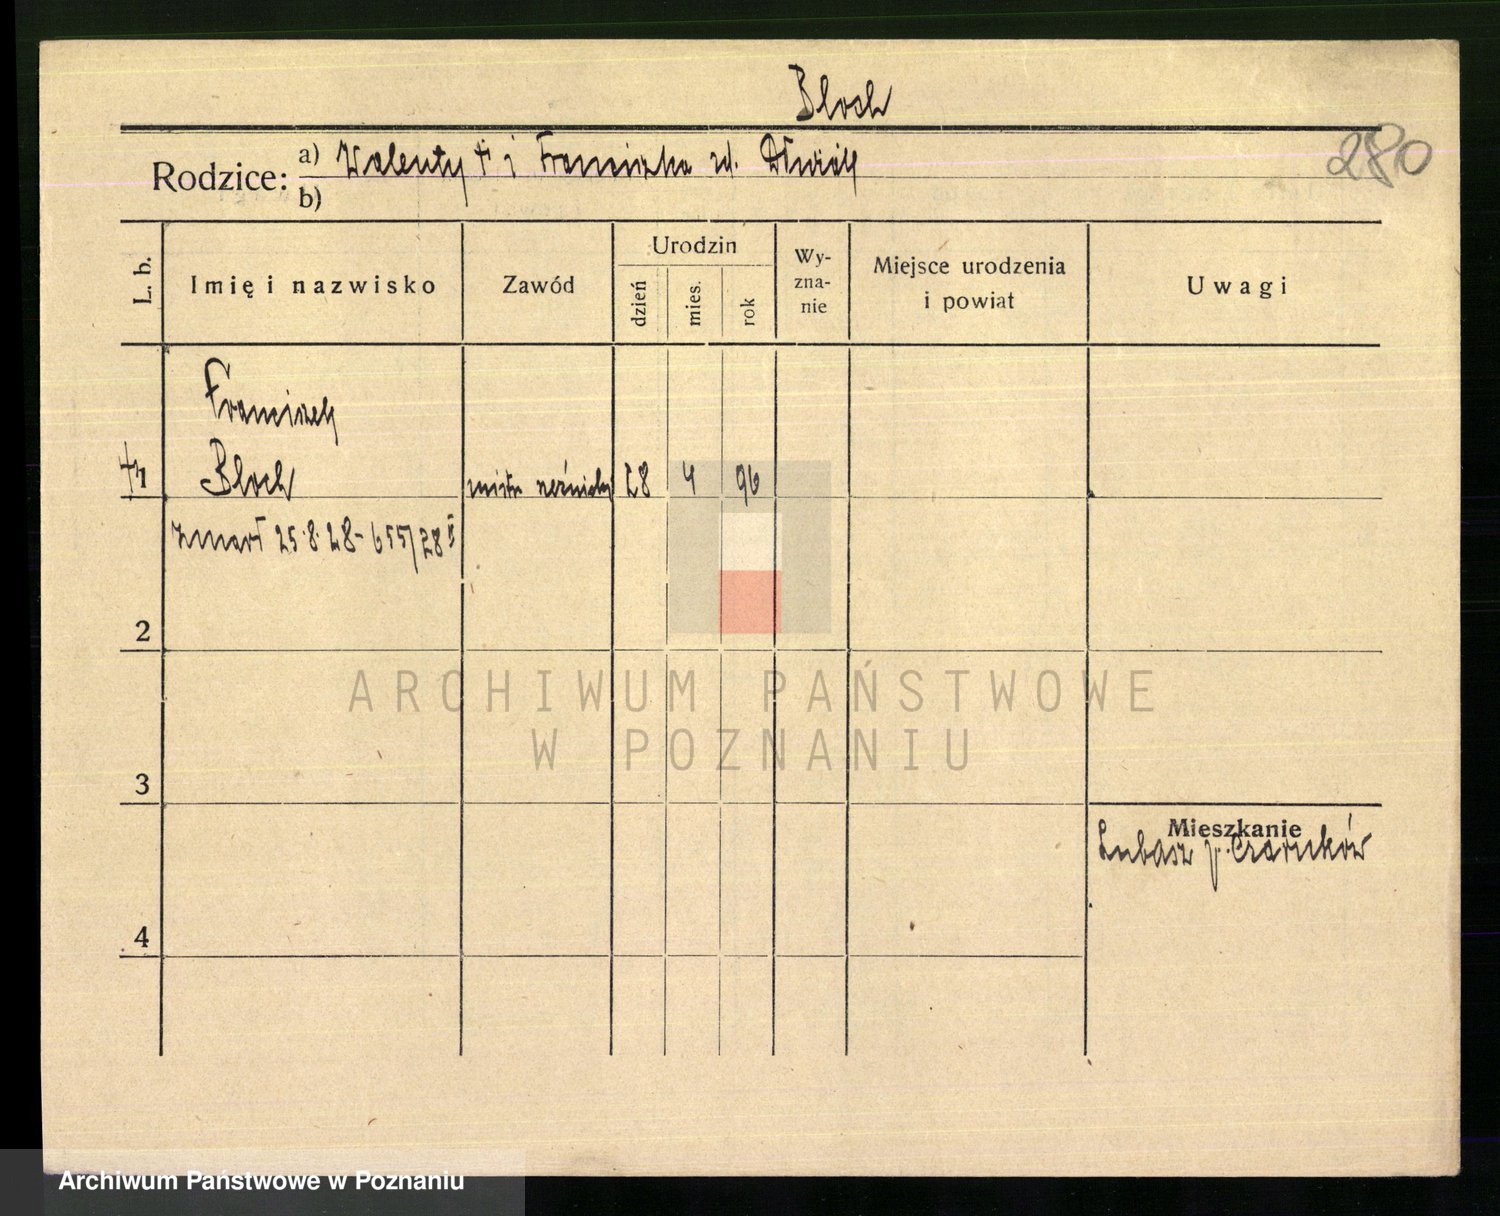 Bloch
280
Rodzice: a) Walenty † i Franciszka zd.
b)
L. b.
Imię i nazwisko
Zawód
Urodzin
dzień
mies.
rok
Wy-
zna-
nie
Miejsce urodzenia
i powiat
Uwagi
Franciszek
† 1 Bloch mistrz rzeźnicki 28 4 96
zmarł 25.8.28 - 655/28
2
3
4
Mieszkanie
Lubasz p. Czarnków
ARCHIWUM PAŃSTWOWE
W POZNANIU
Archiwum Państwowe w Poznaniu